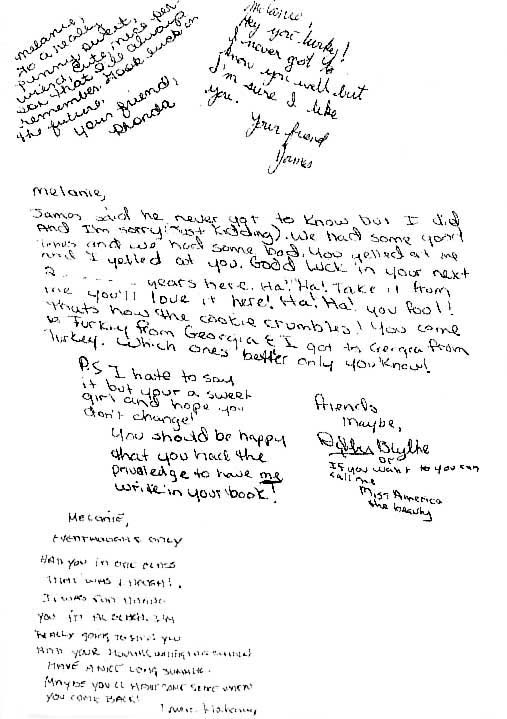 Melanie,
To a really
funny, sweet,
weird, cute, nice per-
son that I'll always
remember. Good luck in
the future.
Your friend,
Rhonda
Melanie,
Hey you turkey!
I never got to
know you well but
I'm sure I like
you.
Your friend
James
Melanie,
James said he never got to know but I did
And I'm sorry (Just kidding). We had some good
times and we had some bad. You yelled at me
and I yelled at you. Good luck in your next
2 - - - - - years here. Ha! Ha! Take it from
me you'll love it here! Ha! Ha! you fool!
Thats how the cookie crumbles! You come
to Turkey from Georgia & I got to Geirgra from
Turkey. Which ones better only you know!
P.S I hate to say
it but your a sweet
girl and hope you
don't change!
You should be happy
that you had the
priviledge to have me
write in your book!
friends
Maybe,
Blythe
or
If you want to you can
call me
Miss America
the beauty
MELANIE,
EVENTHOUGH I ONLY
HAD YOU IN ONE CLASS
THAT WAS ENOUGH!.
IT WAS FUN
YOU
REALLY GOING TO MISS YOU
AND YOUR
HAVE A NICE LONG SUMMER.
MAYBE YOU'LL HAVE SOME WHEN
YOU COME BACK!